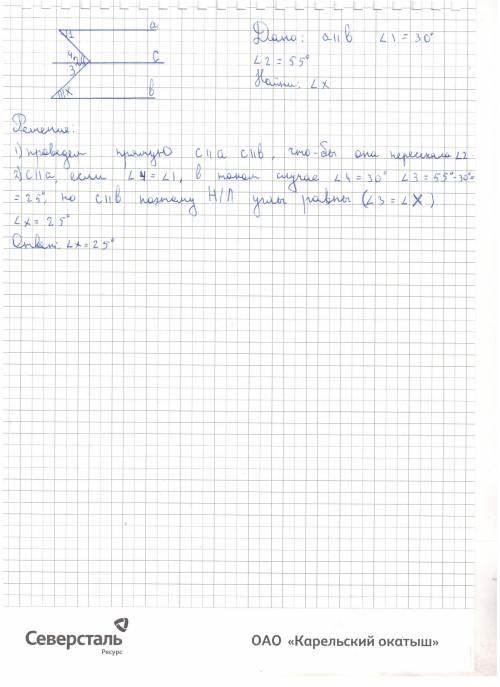 a
1
4 2
c
3
x
b
Дано: a∥b ∠1=30°
∠2=55°
Найти: ∠x
Решение:
1) проведем прямую c∥a c∥b, что-бы она пересекала ∠2
2) c∥a, если ∠4=∠1, в таком случае ∠4=30° ∠3=55°-30°=
=25°, но c∥b поэтому Н/Л углы равны (∠3=∠X)
∠x=25°
Ответ: ∠x=25°
Северсталь
Ресурс
ОАО «Карельский окатыш»